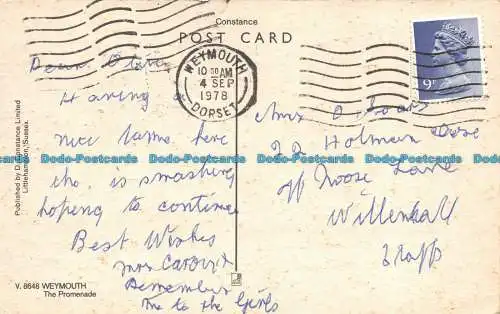 Constance
POST CARD
WEYMOUTH
10 00 AM
4 SEP
1978
DORSET
9P
Dear
Having a
nice time here
the is smashing
hoping to continue
Best Wishes
Mrs
Remember
me to the Girls
Mrs O
Holman
off Noose Lane
Willenhall
Staffs
Published by D. Constance Limited
Littlehampton, Sussex.
V. 8648 WEYMOUTH
The Promenade
Dodo-Postcards Dodo-Postcards Dodo-Postcards Dodo-Postcards Dodo-Postcards